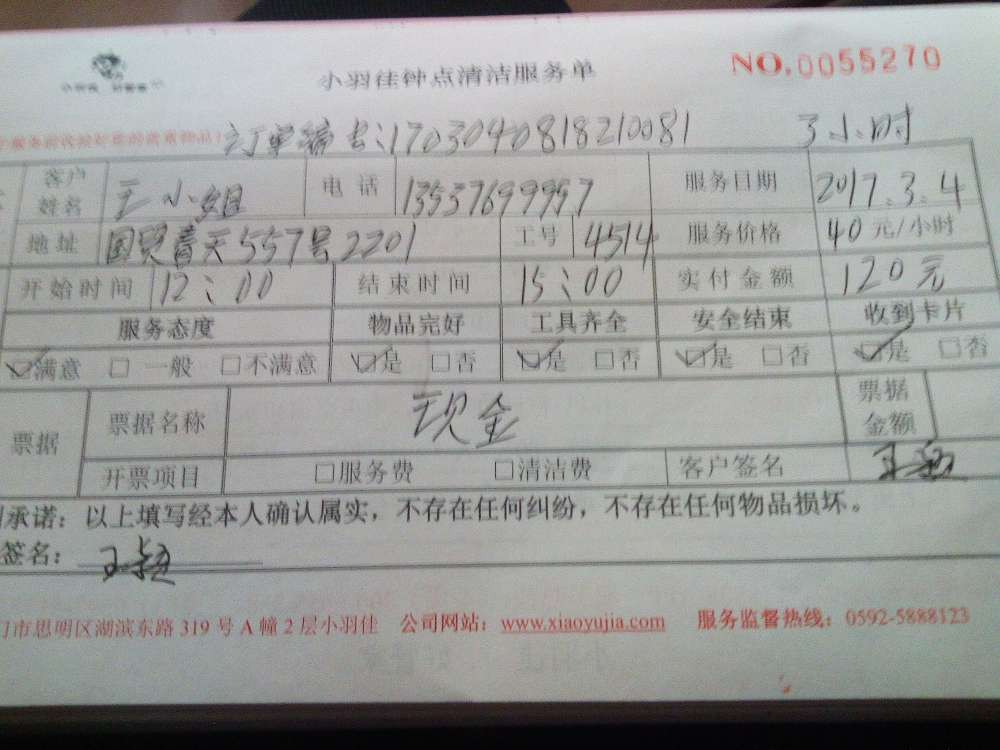 小羽佳钟点清洁服务单 NO.0055270
订单编号:1703040818210081 3小时
客户姓名 王小姐 电话 13537699957 服务日期 2017.3.4
地址 国贸春天557号2201 工号 4514 服务价格 40元/小时
开始时间 12:00 结束时间 15:00 实付金额 120元
服务态度 物品完好 工具齐全 安全结束 收到卡片
☑满意 □一般 □不满意 ☑是 □否 ☑是 □否 ☑是 □否 ☑是 □否
票据 票据名称 现金 票据金额
开票项目 □服务费 □清洁费 客户签名
承诺：以上填写经本人确认属实，不存在任何纠纷，不存在任何物品损坏。
签名：
门市思明区湖滨东路 319 号 A 幢 2 层小羽佳 公司网站：www.xiaoyujia.com 服务监督热线：0592-5888123